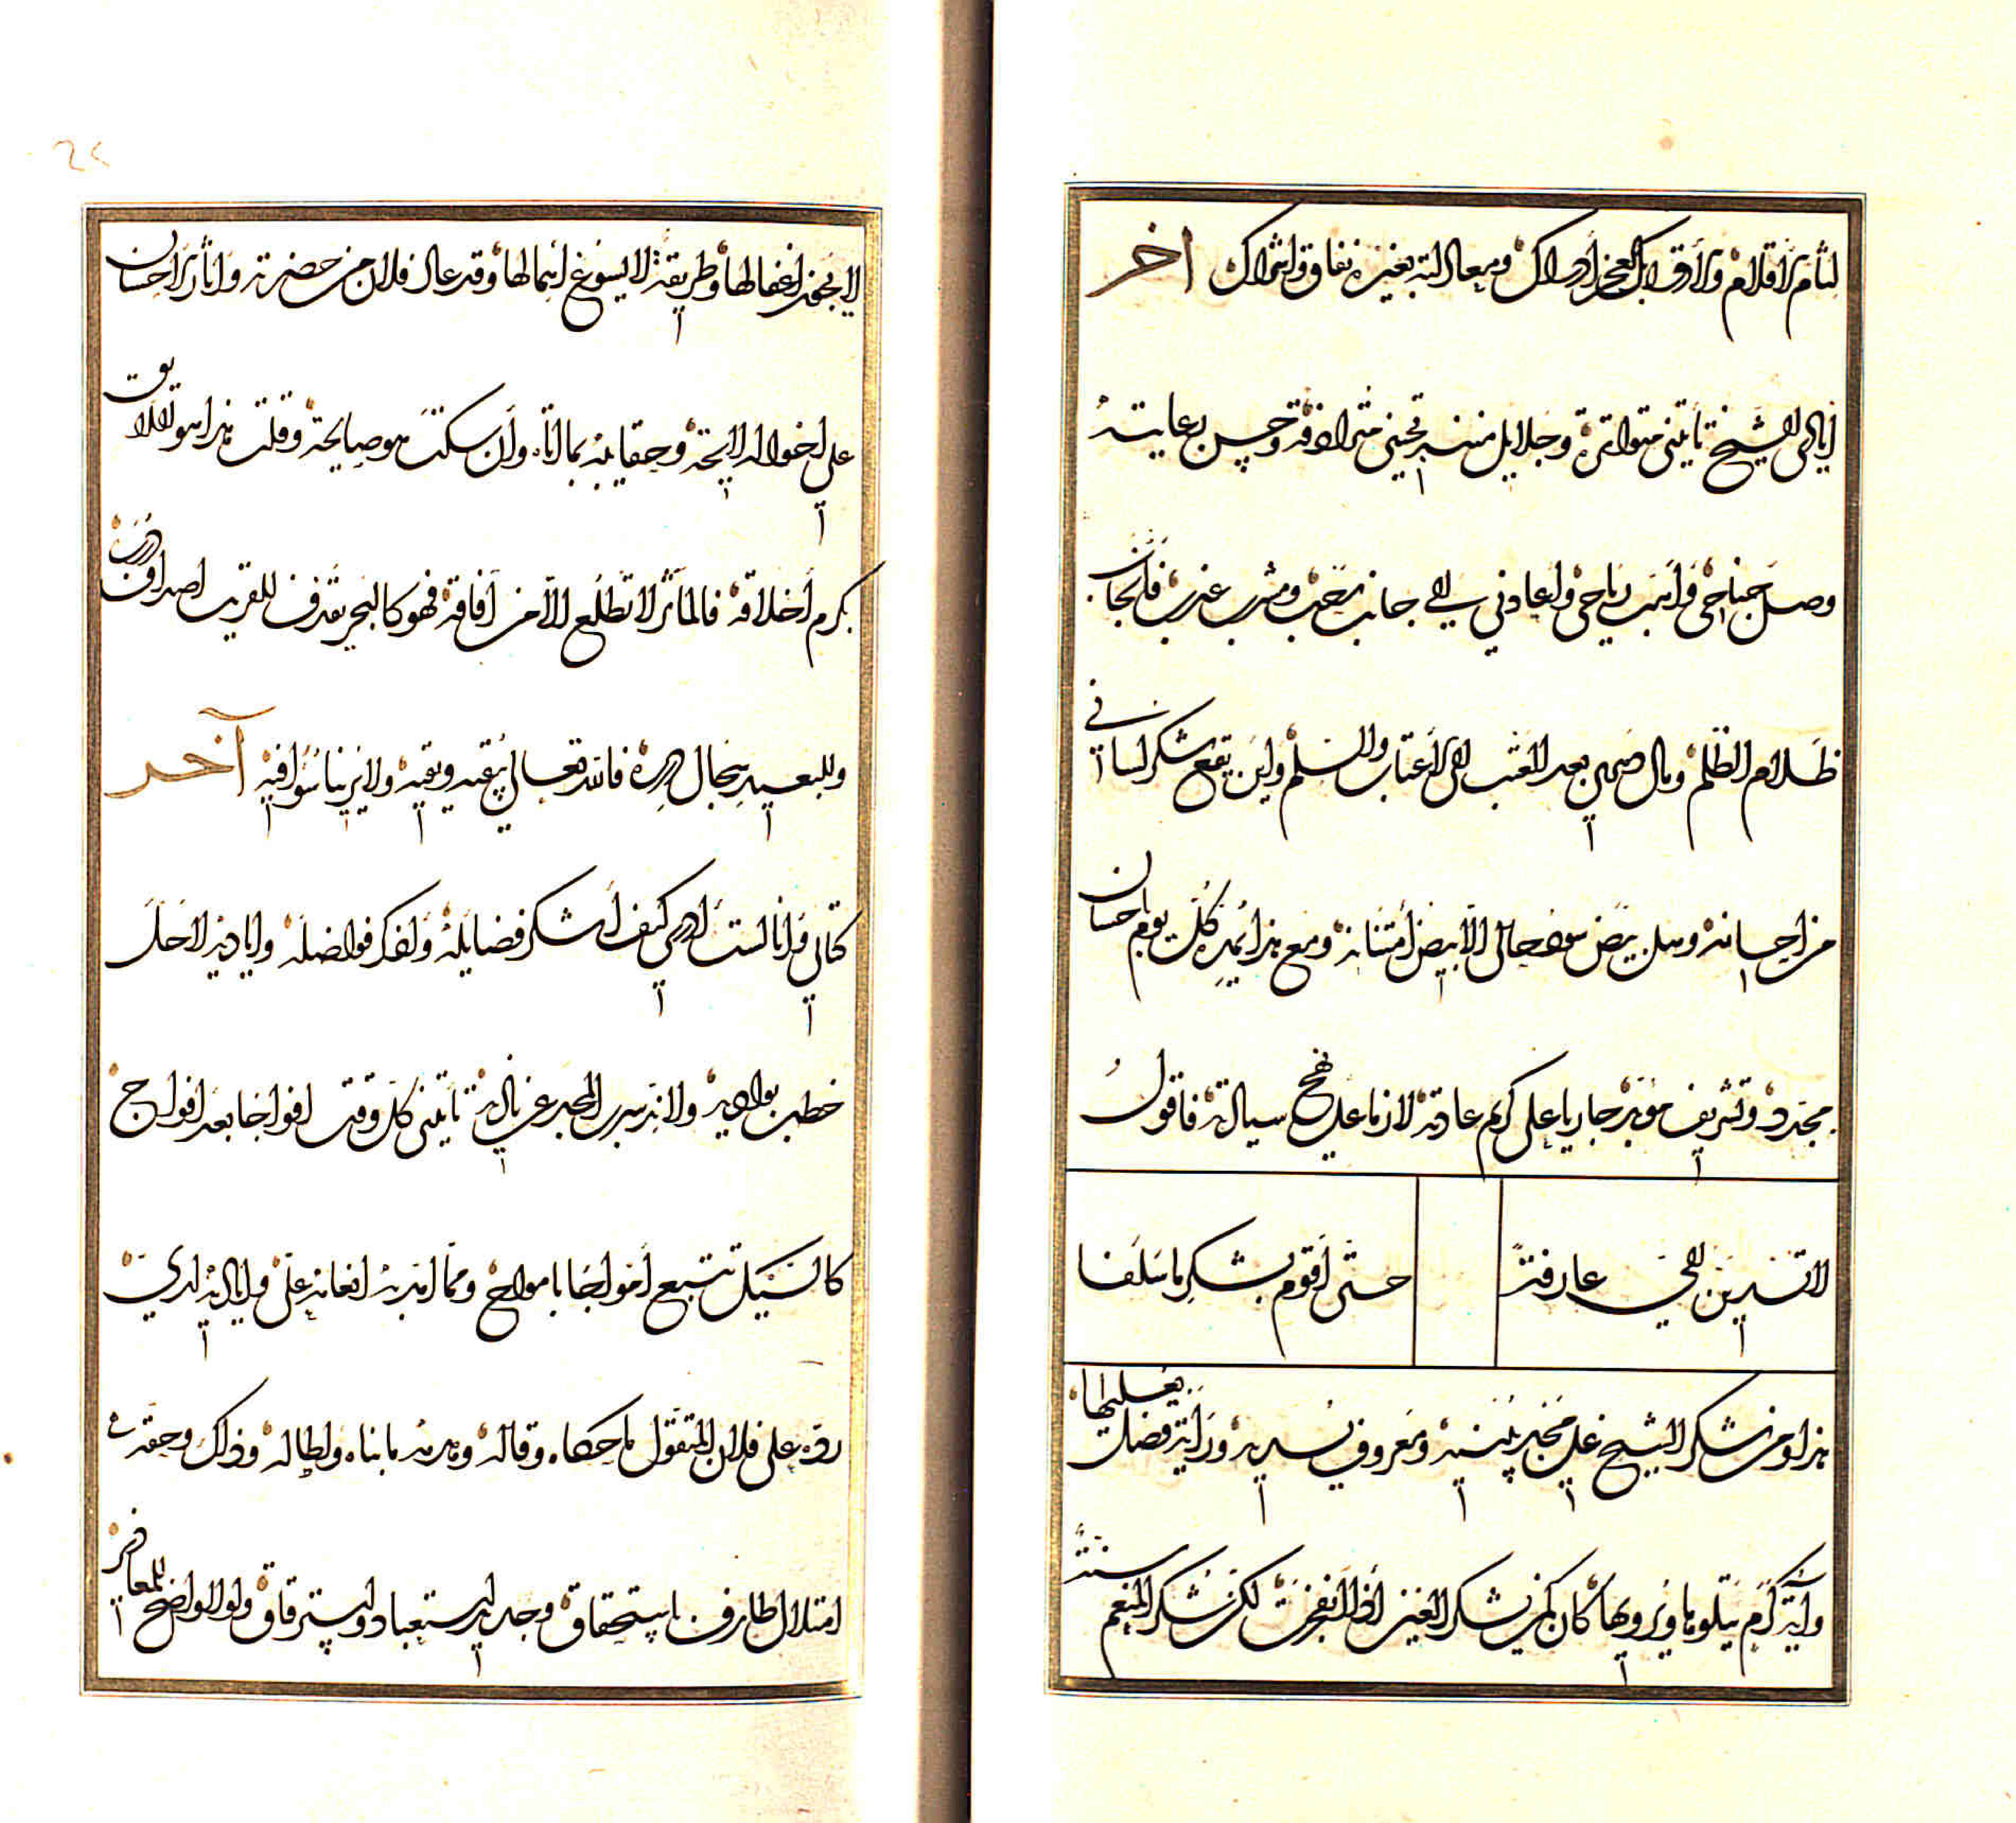 لثام الاقلام والاوراق بل العجز ادراك ومعاذ الله بغير نفاق واشراك آخر
ايادي الشيخ تأتيني متواترة وجلايل مننه تجيئني مترادفة وحسن رعايته
وصل جناحي وأهب رياحي واعادني الى جانب رحب ومشرب عذب فانجاب
ظلام الظلم ومال صبري بعد العتب الى الاعتاب والسلم واين يقع شكر لساني
من احسانه وهل بيض سود حالي الا بيض امتنانه ومع هذا يمد كل يوم باحسان
مجدد وتشريف مؤبد جاريا على كريم عادته لازما على نهج سيادته فاقول
لا تسدين الي عارفة حتى اقوم بشكر ما سلفا
هذا ومن شكر الشيخ على مجد يبنيه ومعروف يسديه وراية فضل يعليها
وآية كرم يتلوها ويرويها كان كمن يشكر الغيث اذا انفجرت لكن شكر المنعم سنة
لا يجوز اغفالها وطريقة لا يسوغ اهمالها وقد عاد فلان من حضرته وآثار احسان
على احواله لايحة وحقايبه بمالاته وان سكت هو صايحة وقلت هذا هو اللايق
بكرم اخلاقه فالمآثر لا تطلع الا من آفاقه فهو كالبحر يقذف للقريب اصداف درره
وللبعيد سحال درره فالله تعالى يبقيه ويقيه ولا يرينا سوءا فيه آخر
كتابي وانا لست ادري كيف اشكر فضايله واذكر فواضله واياديه لا حل
خطب بواديه ولا اندرس المجد عن ناديه تأتيني كل وقت افواجا بعد افواج
كالسيل تتبع امواجا بامواج ومما امد به انعامه علي واياديه لدي
رده على فلان المتقول ما حكاه وقاله وهدمه ما بناه واطاله وذلك وحقه
امتلاك طارف باستحقاق وجديد استعباد واسترقاق ولو لا واضح المعاذير